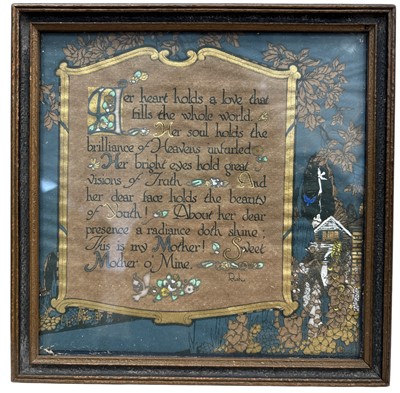 Her heart holds a love that
fills the whole world.
Her soul holds the
brilliance of Heavens unfurled.
Her bright eyes hold great
visions of Truth. And
her dear face holds the beauty
of Youth! About her dear
presence a radiance doth shine;
This is my Mother! Sweet
Mother o' Mine.